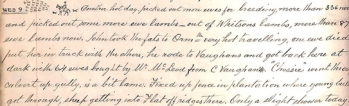 WED 9 Another hot day, picked out more ewes for breeding, more than 336 now
and picked out some more ewe lambs – out of Watsons lambs, more than 87
ewe lambs now. John took the fats to Orm very hot travelling, one ewe died
put her in truck with the others, he rode to Vaughans and got back here at
dark with 64 ewes bought by Mr McLeod from C Vaughans "Chassie" went three
culvert up gully, is a bit lame. Fixed up fence in plantation where young cows
get through, sheep getting into Flat off ridges there. Only a slight shower today